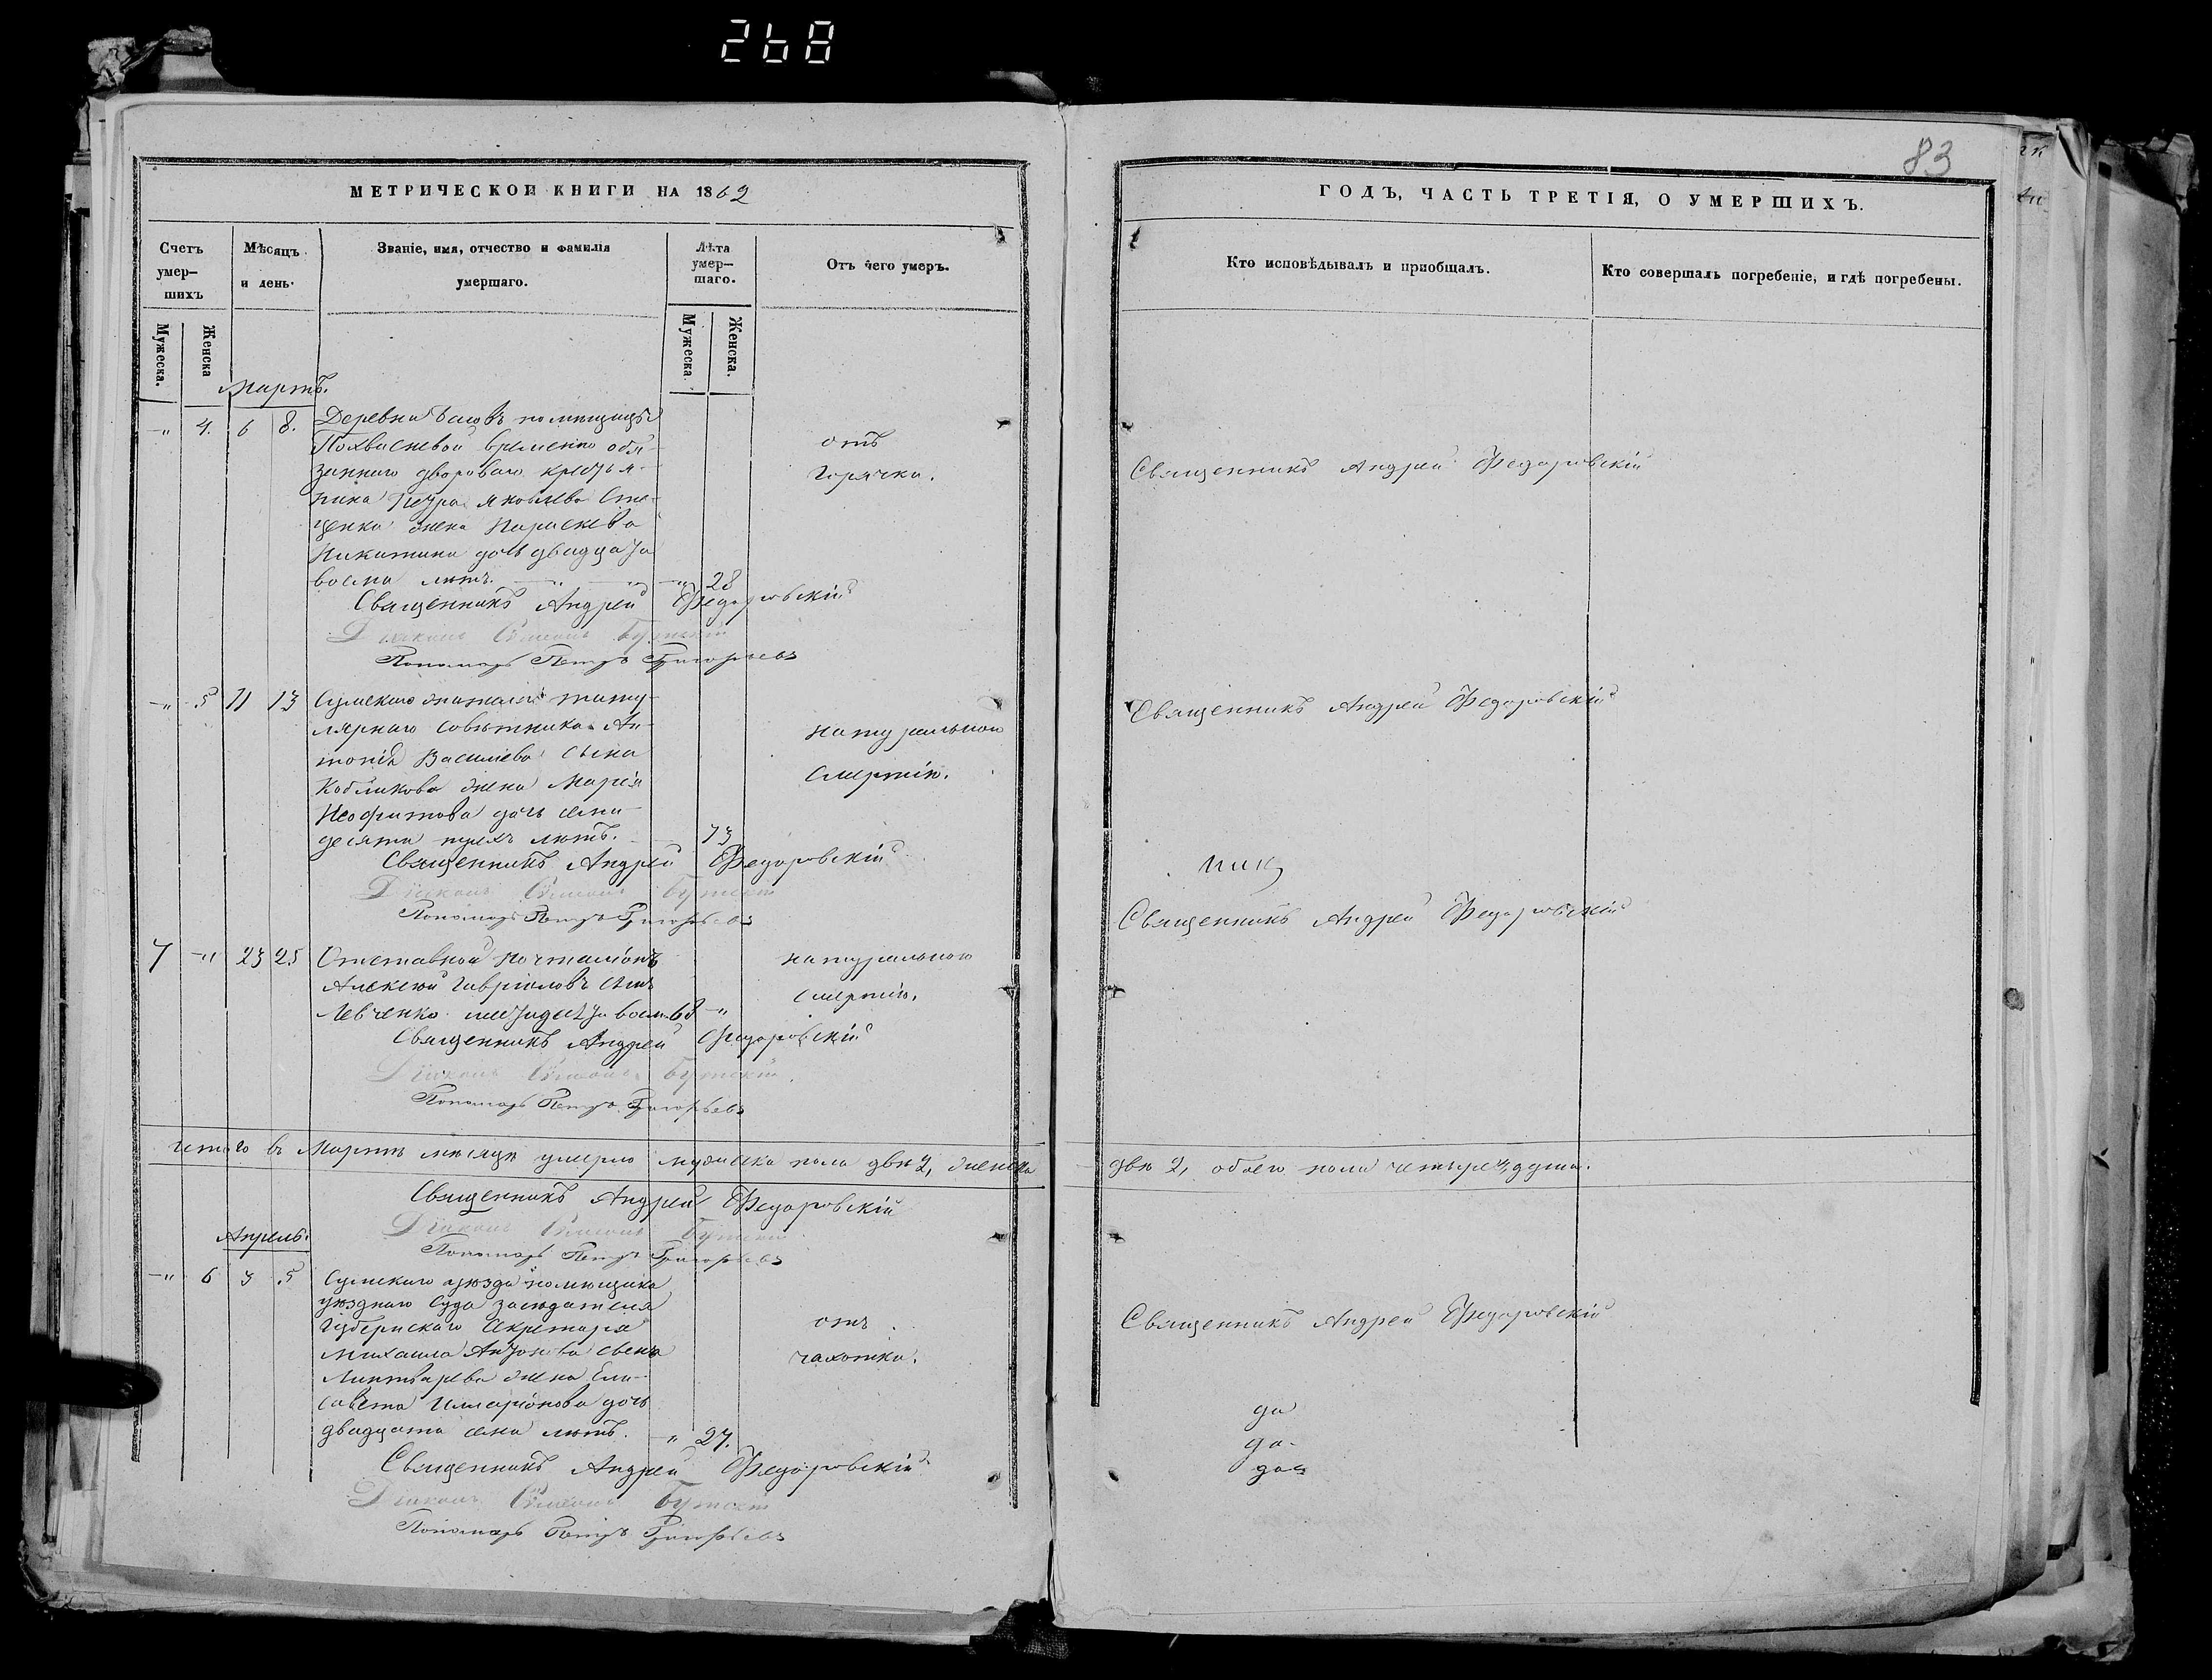 268
83
МЕТРИЧЕСКОЙ КНИГИ НА 1862
ГОДЪ, ЧАСТЬ ТРЕТІЯ, О УМЕРШИХЪ.
Счетъ умер— шихъ
Мѣсяцъ и день.
Званіе, имя, отчество и фамилія умершаго.
Лѣта умер— шаго.
Отъ чего умеръ.
Кто исповѣдывалъ и пріобщалъ.
Кто совершалъ погребеніе, и гдѣ погребены.
Мужеска.
Женска
Мужеска.
Женска.
Мартъ.
—„ 4. 6 8. Деревни помѣщицы
Похвисневой временно обя-
заннаго двороваго крестья-
нина Петра Яковлева Сте-
ценка жена Параскева
Никитина дочь двадцати
восми лѣтъ. —„ 28
отъ
горячки.
Священникъ Андрей Федоровскій
Священникъ Андрей Федоровскій
Діаконъ Симеонъ
Пономарь Петръ Григорьевъ
—„ 5 11 13 Сумскаго жителя титу-
лярнаго совѣтника Ан-
тонія Василіева сына
Кобликова жена Марія
Неофитова дочь семи-
десяти трехъ лѣтъ. 73
натуральною
смертію.
Священникъ Андрей Федоровскій
Священникъ Андрей Федоровскій
Діаконъ Симеонъ
Пономарь Петръ Григорьевъ
7 —„ 23 25 Отставной почталіонъ
Алексѣй Гавріиловъ сынъ
Левченко шестидесяти восм. 68 —„
натуральною
смертію.
ник
Священникъ Андрей Федоровскій
Священникъ Андрей Федоровскій
Діаконъ Симеонъ
Пономарь Петръ Григорьевъ
Итого въ Мартѣ мѣсяцѣ умерло мужеска пола двѣ 2, женска
двѣ 2, обоего пола четыре 4, души.
Священникъ Андрей Федоровскій
Діаконъ Симеонъ
Пономарь Петръ Григорьевъ
Апрель.
—„ 6 3 5 Сумскаго уѣзда помѣщика
уѣзднаго суда засѣдателя
Губернскаго Секретаря
Михаила Антонова сына
Линтварева жена Ели-
савета Илларіонова дочь
двадцати семи лѣтъ. —„ 27.
отъ
чахотки.
Священникъ Андрей Федоровскій
да
да
да
Священникъ Андрей Федоровскій
Діаконъ Симеонъ
Пономарь Петръ Григорьевъ